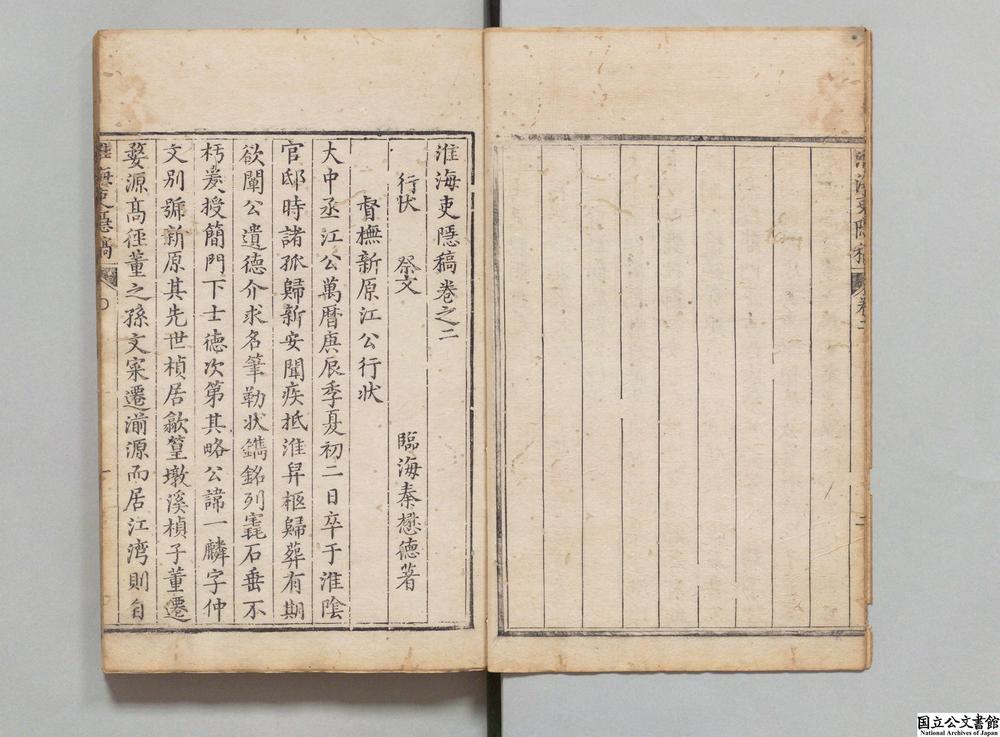 淮海吏隱稿 卷二
二
淮海吏隱稿卷之二
行狀 祭文 臨海秦懋德著
督撫新原江公行狀
大中丞江公萬曆庚辰季夏初二日卒于淮陰
官邸時諸孤歸新安聞疾抵淮舁柩歸葬有期
欲闡公遺德介求名筆勒狀鐫銘列窀石垂不
朽爰授簡門下士德次第其略公諱一麟字仲
文別號新原其先世楨居歙篁墩溪楨子董遷
婺源高徑董之孫文寀遷湖源而居江湾則自
淮海吏隱稿
国立公文書館
National Archives of Japan